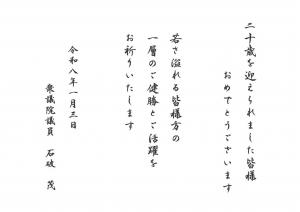 二十歳を迎えられました皆様
おめでとうございます
若さ溢れる皆様方の
一層のご健勝とご活躍を
お祈りいたします
令和八年一月三日
衆議院議員 石破 茂